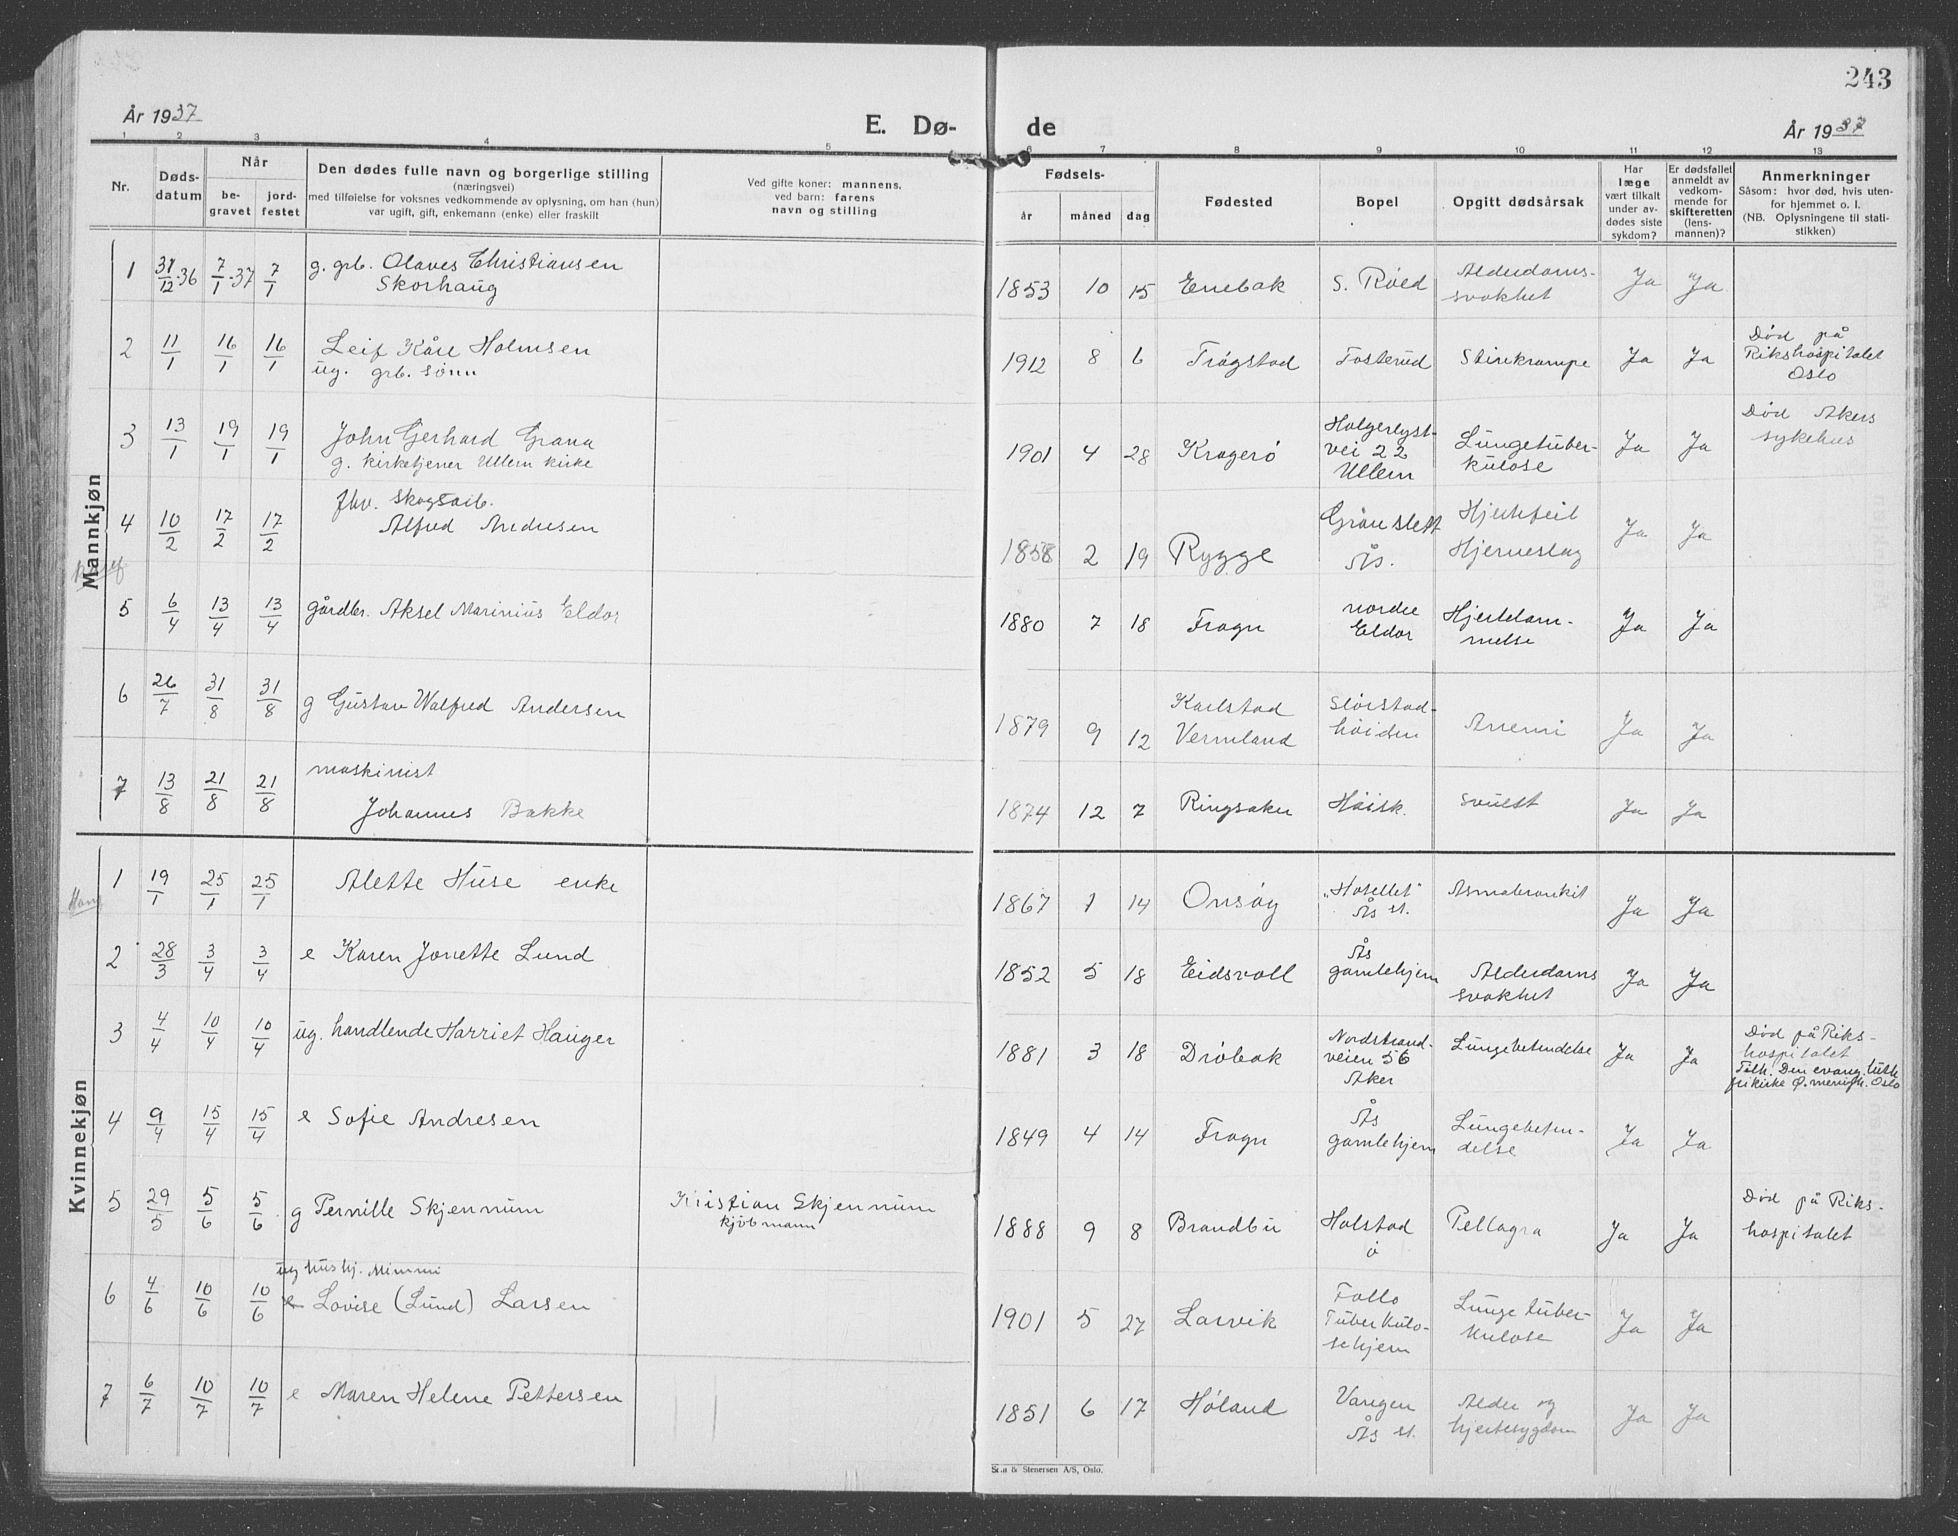 243
År 1937
E. Dø-
de
År 1937
1 2 3 4 5 6 7 8 9 10 11 12 13
Nr.
Døds-
datum
Når
be-
gravet
jord-
festet
Den dødes fulle navn og borgerlige stilling
(næringsvei)
med tilføielse for voksnes vedkommende av oplysning, om han (hun)
var ugift, gift, enkemann (enke) eller fraskilt
Ved gifte koner: mannens,
ved barn: farens
navn og stilling
Fødsels-
år måned dag
Fødested
Bopel
Opgitt dødsårsak
Har
læge
vært tilkalt
under av-
dødes siste
sykdom?
Er dødsfallet
anmeldt av
vedkom-
mende for
skifteretten
(lens-
mannen)?
Anmerkninger
Såsom: hvor død, hvis uten-
for hjemmet o. l.
(NB. Oplysningene til stati-
stikken)
Mannkjøn
1 31/12-36 7/1-37 7/1 g. grb. Olaves Christiansen
Skorhaug
1853 10 15 Enebak S. Røed Alderdoms-
svakhet
Ja Ja
2 11/1 16/1 16/1 Leif Kåre Holmsen
ug. grb. sønn
1912 8 6 Trøgstad Fosterud Stivekrampe Ja Ja
Død på
Rikshospitalet
Oslo
3 13/1 19/1 19/1 John Gerhard Grana
g. kirketjener Ullern kirke
1901 4 28 Kragerø
Holgerlyst-
vei 22
Ullern
Lungetuber-
kulose
Ja Ja
Død Akers
sykehus
4 10/2 17/2 17/2 fhv. skogsarb.
Alfred Andresen
1858 2 19 Rygge
Granslett
Ås.
Hjertefeil
Hjerneslag
Ja Ja
5 6/4 13/4 13/4 gårdbr. Aksel Marinius Eldor
1880 7 18 Frogn
nordre
Eldor
Hjertelam-
melse
Ja Ja
6 26/7 31/8 31/8 g Gustav Walfred Andersen
1879 9 12
Karlstad
Vermland
høiden
Anemi
Ja Ja
7 13/8 21/8 21/8 maskinist
Johannes Bakke
1874 12 7 Ringsaker Høisk. svulst Ja Ja
Kvinnekjøn
1 19/1 25/1 25/1 Alette Huse enke
1867 1 14 Onsøy
"Hotellet"
Ås st.
Asmabronkit
Ja Ja
2 28/3 3/4 3/4 e Karen Jonette Lund
1852 5 18 Eidsvoll
Ås
gamlehjem
Alderdoms
svakhet
Ja Ja
3 4/4 10/4 10/4 ug. handlende Harriet Hauger
1881 3 18 Drøbak
Nordstrand-
veien 56
Aker
Lungebetendelse Ja Ja
Død på Riks-
hospitalet
Tilh. Den evang. luth.
frikirke Ø. menigh. Oslo
4 9/4 15/4 15/4 e Sofie Andresen
1849 4 14 Frogn
Ås
gamlehjem
Lungebeten-
delse
Ja Ja
5 29/5 5/6 5/6 g Pernille Skjennum
Kristian Skjennum
kjøbmann
1888 9 8 Brandbu
Holstad
ø
Pellagra Ja Ja
Død på Riks-
hospitalet
6 4/6 10/6 10/6 ug hushj. Mimmi
e Lovise (Lund) Larsen
1901 5 27 Larvik
Follo
Tuberkulo-
sehjem
Lungetuber-
kulose
Ja Ja
7 6/7 10/7 10/7 e Maren Helene Pettersen
1851 6 17 Høland
Varigen
Ås st.
Alder og
hjertesygdom
Ja Ja
& Stenersen A/S, Oslo.